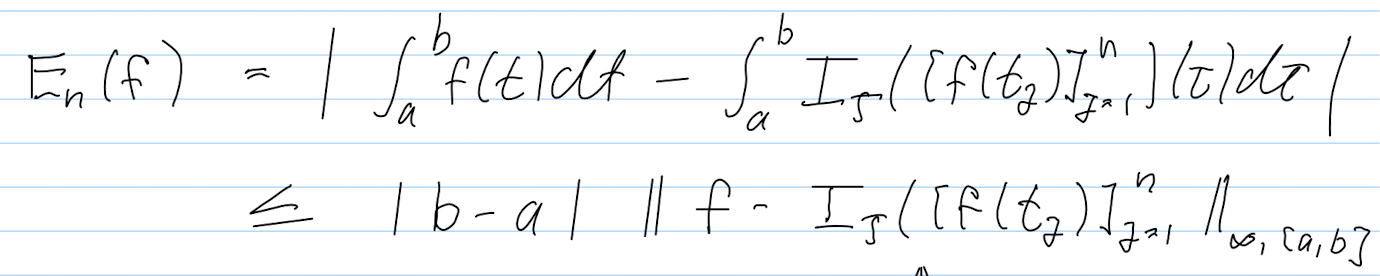 E_n(f) = | ∫_a^b f(t)dt − ∫_a^b I_J([f(t_j)]_{j=1}^n)(τ)dτ |
≤ |b-a| ‖ f - I_J([f(t_j)]_{j=1}^n ‖_{∞,[a,b]}